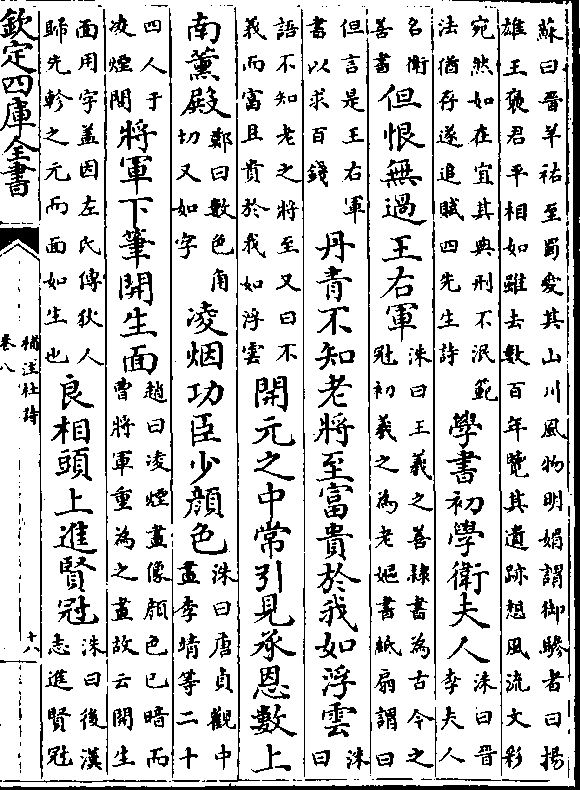 蘇曰晉羊祜至蜀愛其山川風物明媚謂御驂者曰揚
雄王襃君平相如雖去數百年覽其遺跡想風流文彩
宛然如在宜其典刑不泯範
法猶存遂追賦四先生詩
學書初學衛夫人
洙曰晉
李夫人
名衛
善書
但恨無過王右軍
洙曰王羲之善隸書為古今之
冠初羲之為老嫗書紙扇謂曰
但言是王右軍
書以求百錢
丹青不知老將至富貴於我如浮雲
洙
曰
語不知老之將至又曰不
義而富且貴於我如浮雲
開元之中常引見承恩數上
南薰殿
鄭曰數色角
切又如字
凌烟功臣少顏色
洙曰唐貞觀中
畫李靖等二十
四人于
凌煙閣
將軍下筆開生面
趙曰凌煙畫像顏色已暗而
曹將軍重為之畫故云開生
面用字盖因左氏傳狄人
歸先軫之元而面如生也
良相頭上進賢冠
洙曰後漢
志進賢冠
欽定四庫全書
補注杜詩
卷八
十八